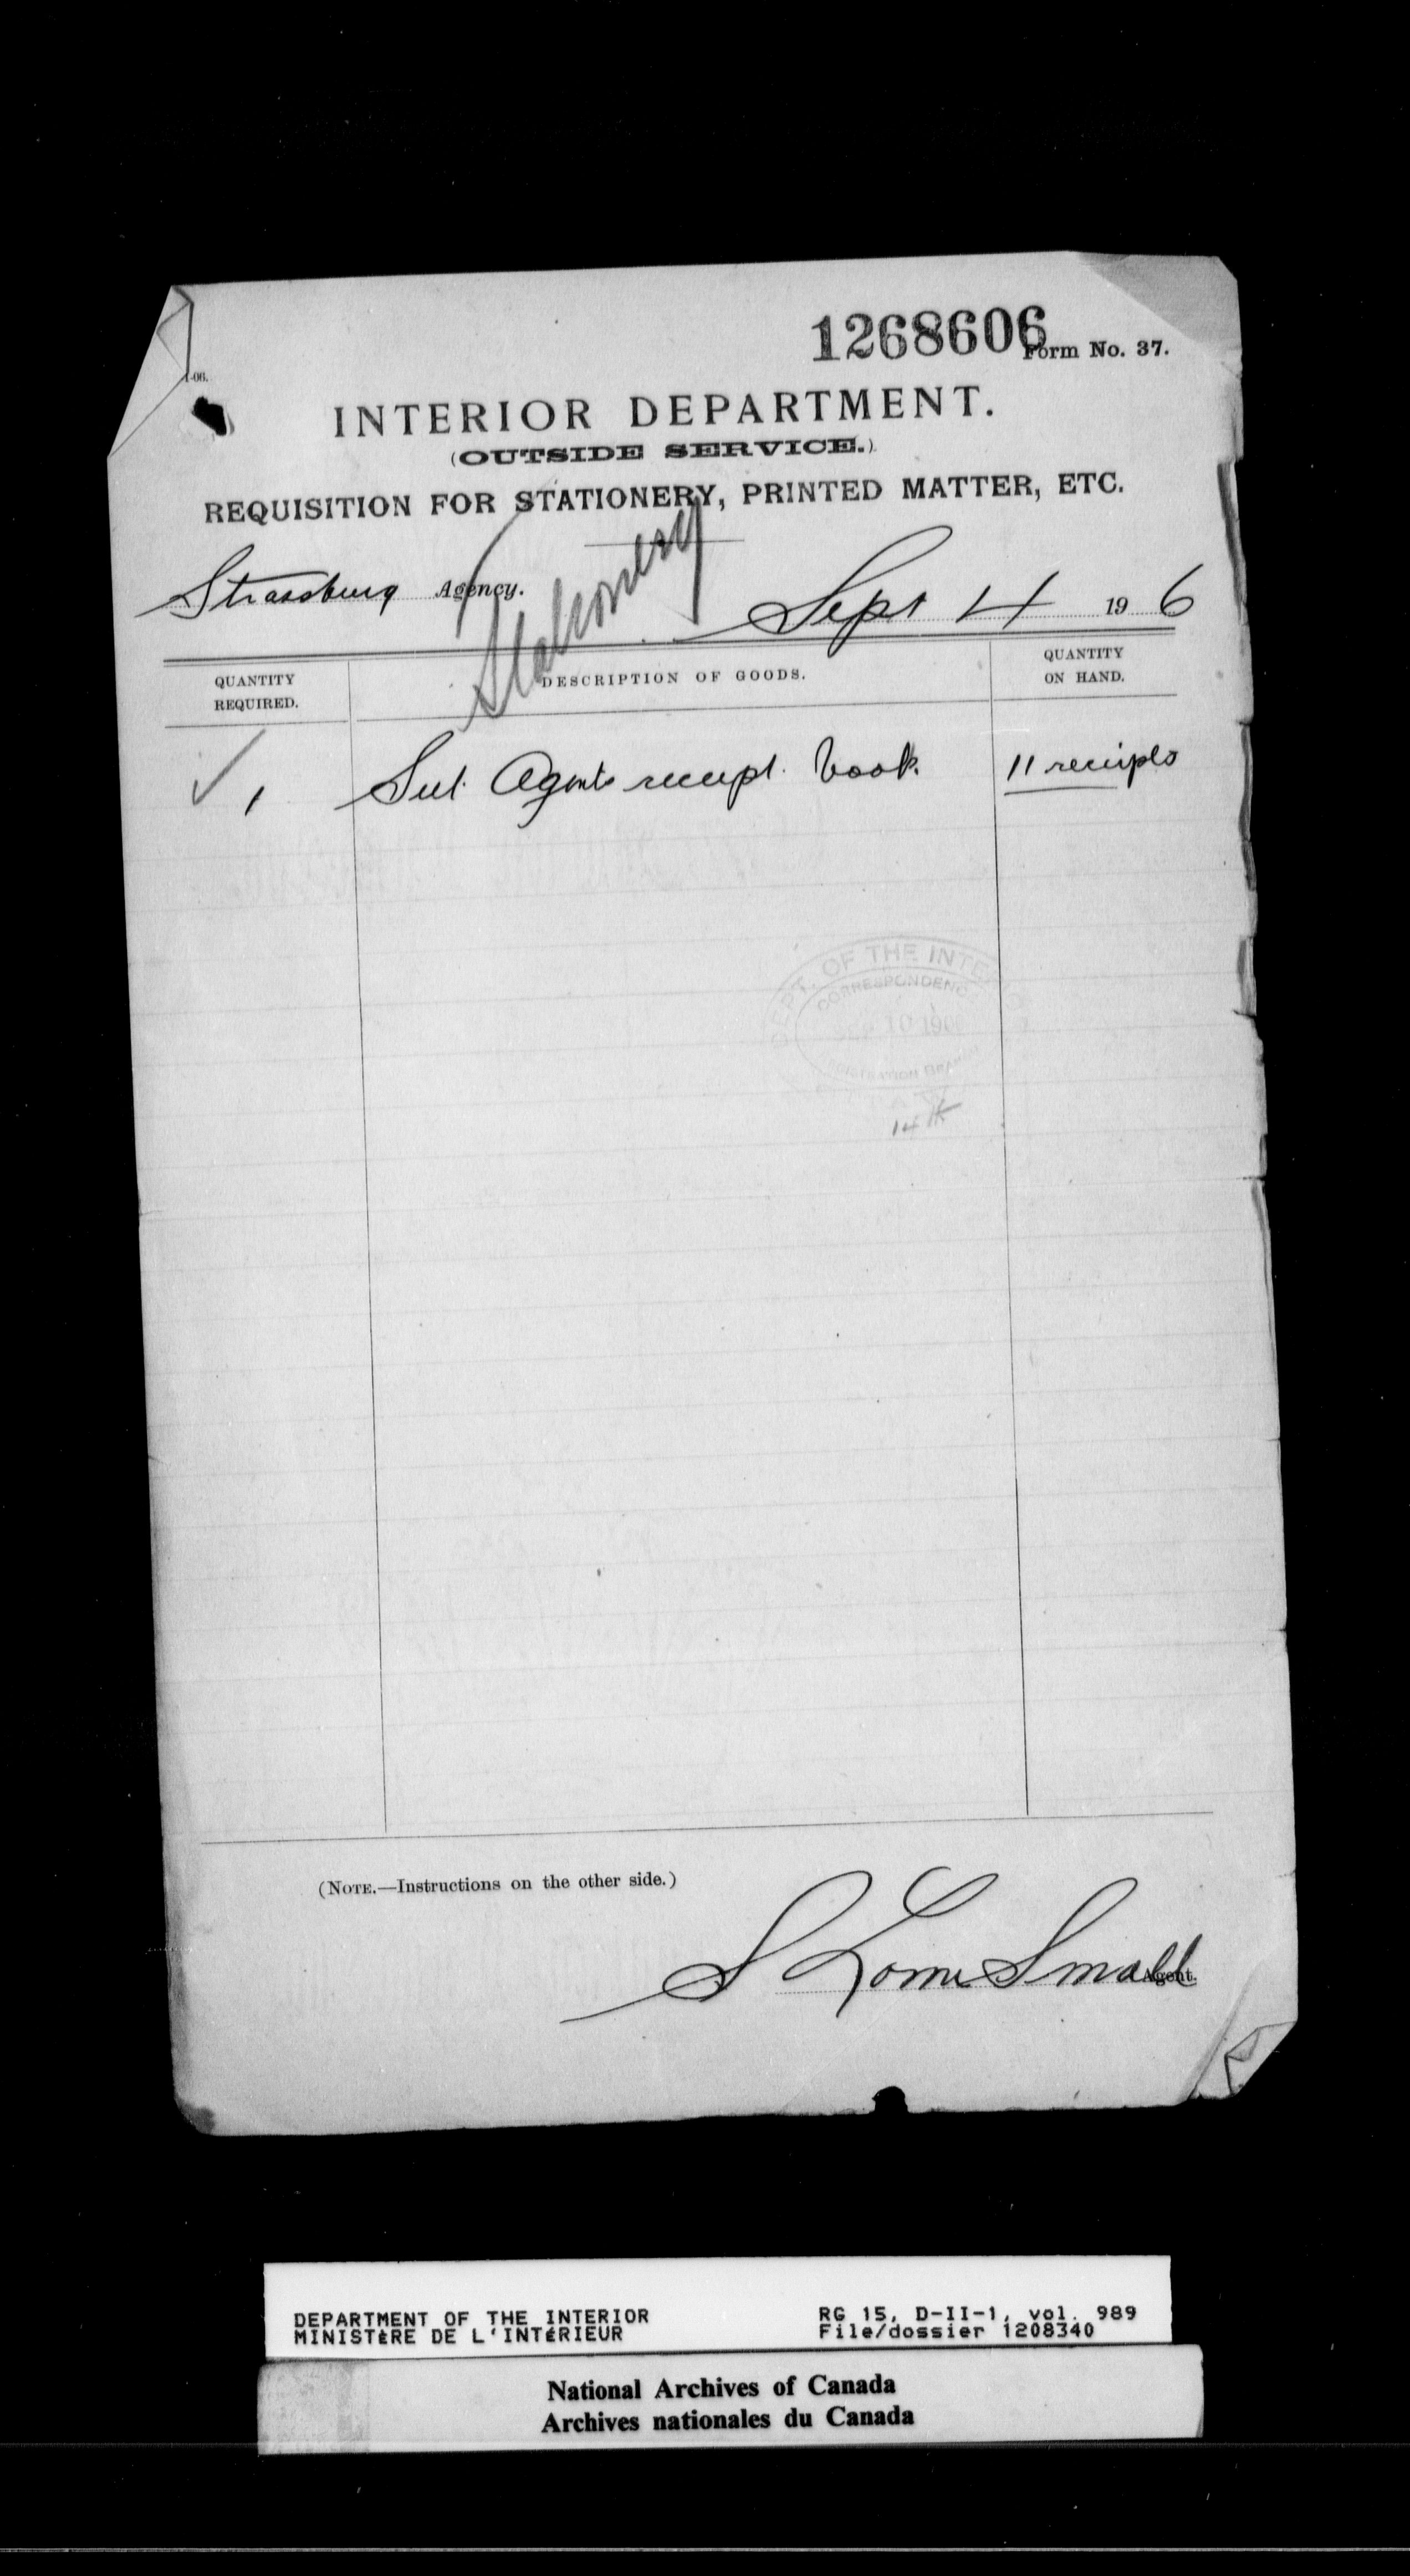 1268606
Form No. 37.
1-06.
INTERIOR DEPARTMENT.
(OUTSIDE SERVICE.)
REQUISITION FOR STATIONERY, PRINTED MATTER, ETC.
Stationery
Strassburg Agency.
Sept 4 19 6
QUANTITY REQUIRED.
DESCRIPTION OF GOODS.
QUANTITY ON HAND.
✓ 1 Sub. Agents receipt. book. 11 receipts
DEPT. OF THE INTERIOR
CORRESPONDENCE
SEP 10 1906
REGISTRATION BRANCH
14
(NOTE.—Instructions on the other side.)
S Lorne Small
Agent.
DEPARTMENT OF THE INTERIOR RG 15, D-II-1, vol. 989
MINISTÈRE DE L'INTÉRIEUR File/dossier 1208340
National Archives of Canada
Archives nationales du Canada